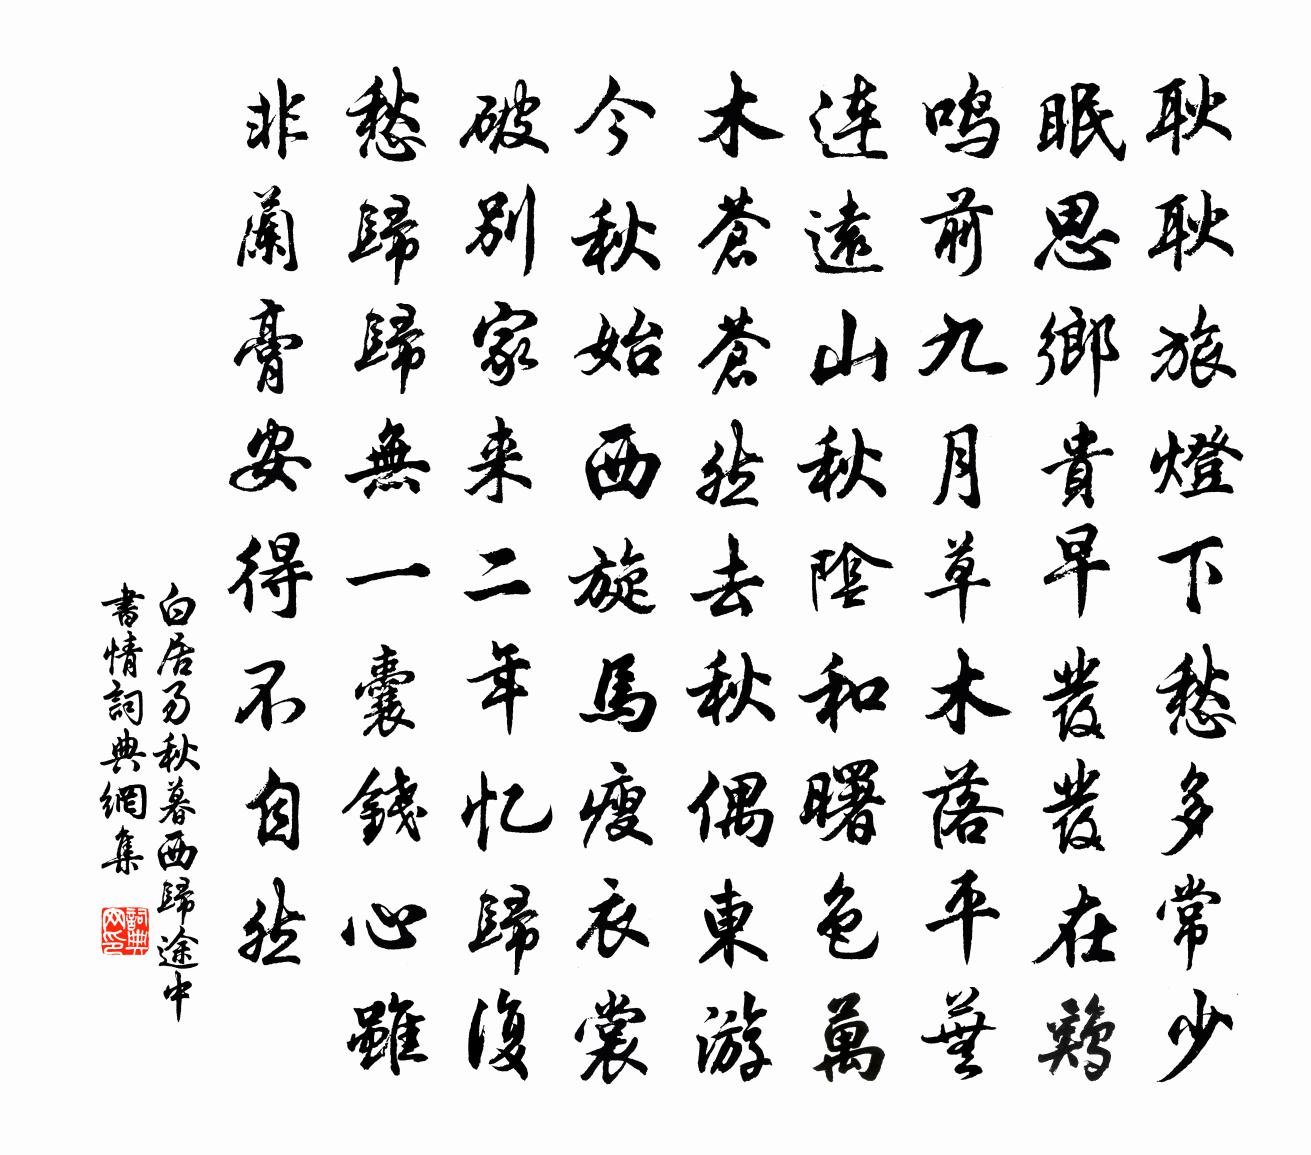 耿耿旅燈下愁多常少
眠思鄉貴早發發在鷄
鳴前九月草木落平蕪
連遠山秋陰和曙色萬
木蒼蒼然去秋偶東游
今秋始西旋馬瘦衣裳
破別家来二年忆歸復
愁歸歸無一囊錢心雖
非蘭膏安得不自然
白居易秋暮西歸途中
書情詞典網集
詞典网印